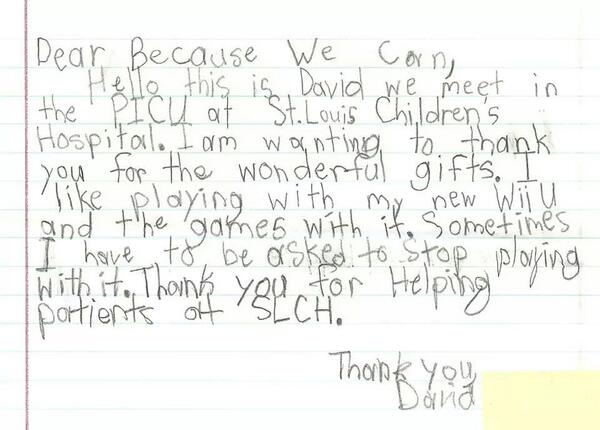 Dear Because We Can,
Hello this is David we meet in
the PICU at St.Louis Children's
Hospital. I am wanting to thank
you for the wonderful gifts. I
like playing with my new Wii U
and the games with it. Sometimes
I have to be asked to stop playing
with it. Thank you for Helping
patients at SLCH.
Thank you,
David